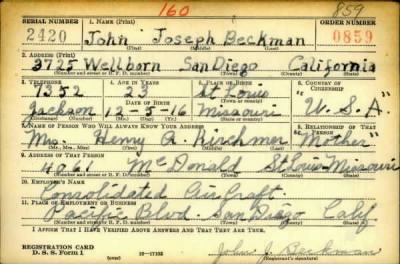 160
859
SERIAL NUMBER 1. NAME (Print) ORDER NUMBER
2420 John Joseph Beckman 0859
(First) (Middle) (Last)
2. ADDRESS (Print)
3725 Wellborn San Diego California
(Number and street or R. F. D. number) (Town) (County) (State)
3. TELEPHONE 4. AGE IN YEARS 5. PLACE OF BIRTH 6. COUNTRY OF CITIZENSHIP
7352 23 St Louis
DATE OF BIRTH (Town or county)
Jackson 12-5-16 Missouri "U.S.A"
(Exchange) (Number) (Mo.) (Day) (Yr.) (State or country)
7. NAME OF PERSON WHO WILL ALWAYS KNOW YOUR ADDRESS 8. RELATIONSHIP OF THAT PERSON
Mrs. Henry "Mother"
(Mr., Mrs., Miss) (First) (Middle) (Last)
9. ADDRESS OF THAT PERSON
McDonald St Louis Missouri
(Number and street or R. F. D. number) (Town) (County) (State)
10. EMPLOYER'S NAME
Consolidated Aircraft.
11. PLACE OF EMPLOYMENT OR BUSINESS
Pacific Blvd. San Diego Calif.
(Number and street or R. F. D. number) (Town) (County) (State)
I AFFIRM THAT I HAVE VERIFIED ABOVE ANSWERS AND THAT THEY ARE TRUE.
REGISTRATION CARD
D. S. S. Form 1 (over) John J. Beckman
(Registrant's signature)